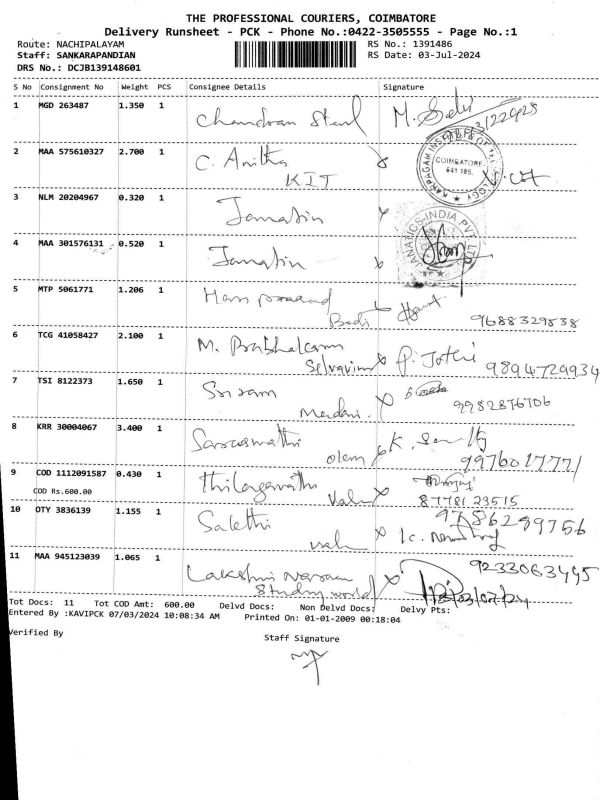 THE PROFESSIONAL COURIERS, COIMBATORE
Delivery Runsheet - PCK - Phone No.:0422-3505555 - Page No.:1
Route: NACHIPALAYAM
RS No.: 1391486
Staff: SANKARAPANDIAN
RS Date: 03-Jul-2024
DRS No.: DCJB139148601
S No Consignment No Weight PCS Consignee Details Signature
1 MGD 263487 1.350 1 Chandran
2 MAA 575610327 2.700 1 C. Anitha
KIT
COIMBATORE-
641 105.
3 NLM 20204967 0.320 1 Jamatin
4 MAA 301576131 0.520 1 Jamatin
5 MTP 5061771 1.206 1 Hari prasad
9688329538
6 TCG 41058427 2.100 1 M. Prabhakaran P. Jothi
9894729934
7 TSI 8122373 1.650 1 Sriram
9982876706
8 KRR 30004067 3.400 1 Saraswathi
9976017771
9 COD 1112091587 0.430 1 Thilagavathi
COD Rs.600.00 8778123515
10 OTY 3836139 1.155 1 Salethi 9786289756
11 MAA 945123039 1.065 1 Lakshmi 9233063495
Study world
Tot Docs: 11 Tot COD Amt: 600.00 Delvd Docs: Non Delvd Docs: Delvy Pts:
Entered By :KAVIPCK 07/03/2024 10:08:34 AM Printed On: 01-01-2009 00:18:04
Verified By
Staff Signature